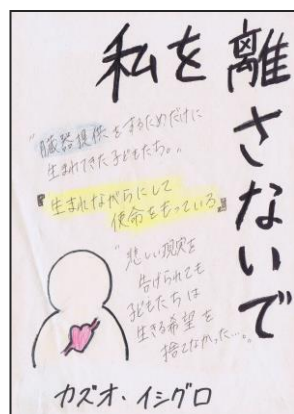 私を離さないで
“臓器提供をするためだけに
生まれてきた子どもたち。„
『生まれながらにして
使命をもっている』
“悲しい現実を
告げられても
子どもたちは
生きる希望を
捨てなかった…。„
カズオ・イシグロ